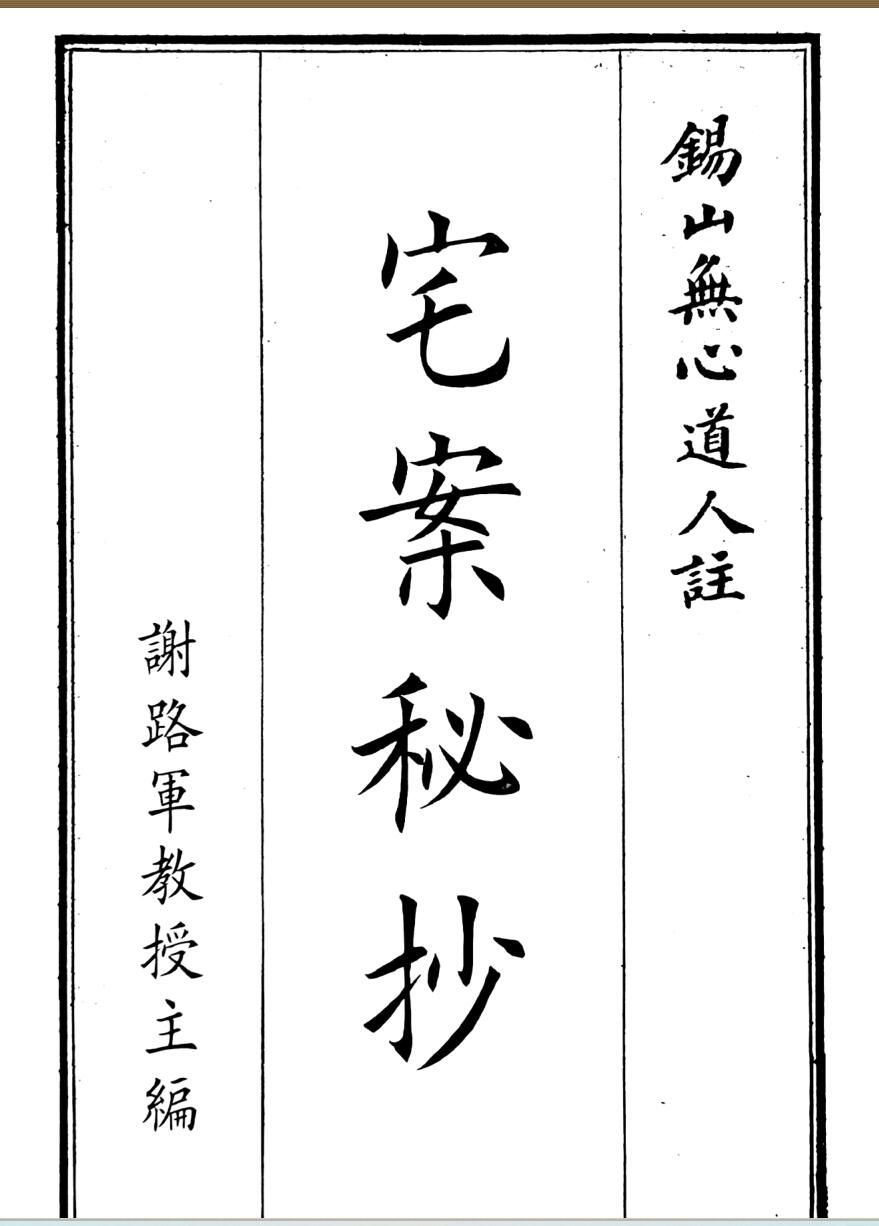 錫山無心道人註
宅案秘抄
謝路軍教授主編